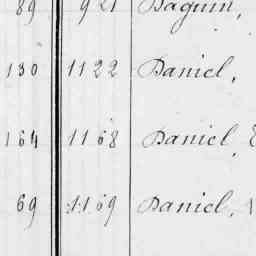 89 921 Daguin,
130 1122 Daniel,
164 1168 Daniel, E
69 1169 Daniel,